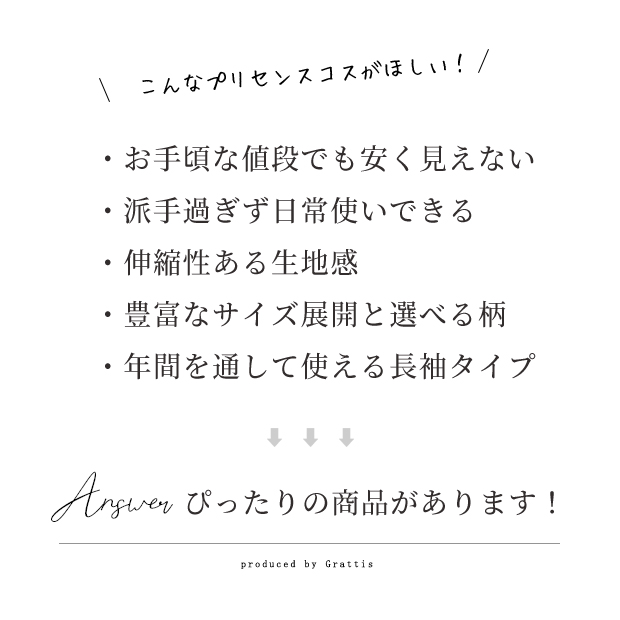 \ こんなプリセンスコスがほしい! /
・お手頃な値段でも安く見えない
・派手過ぎず日常使いできる
・伸縮性ある生地感
・豊富なサイズ展開と選べる柄
・年間を通して使える長袖タイプ
Answer ぴったりの商品があります!
produced by Grattis